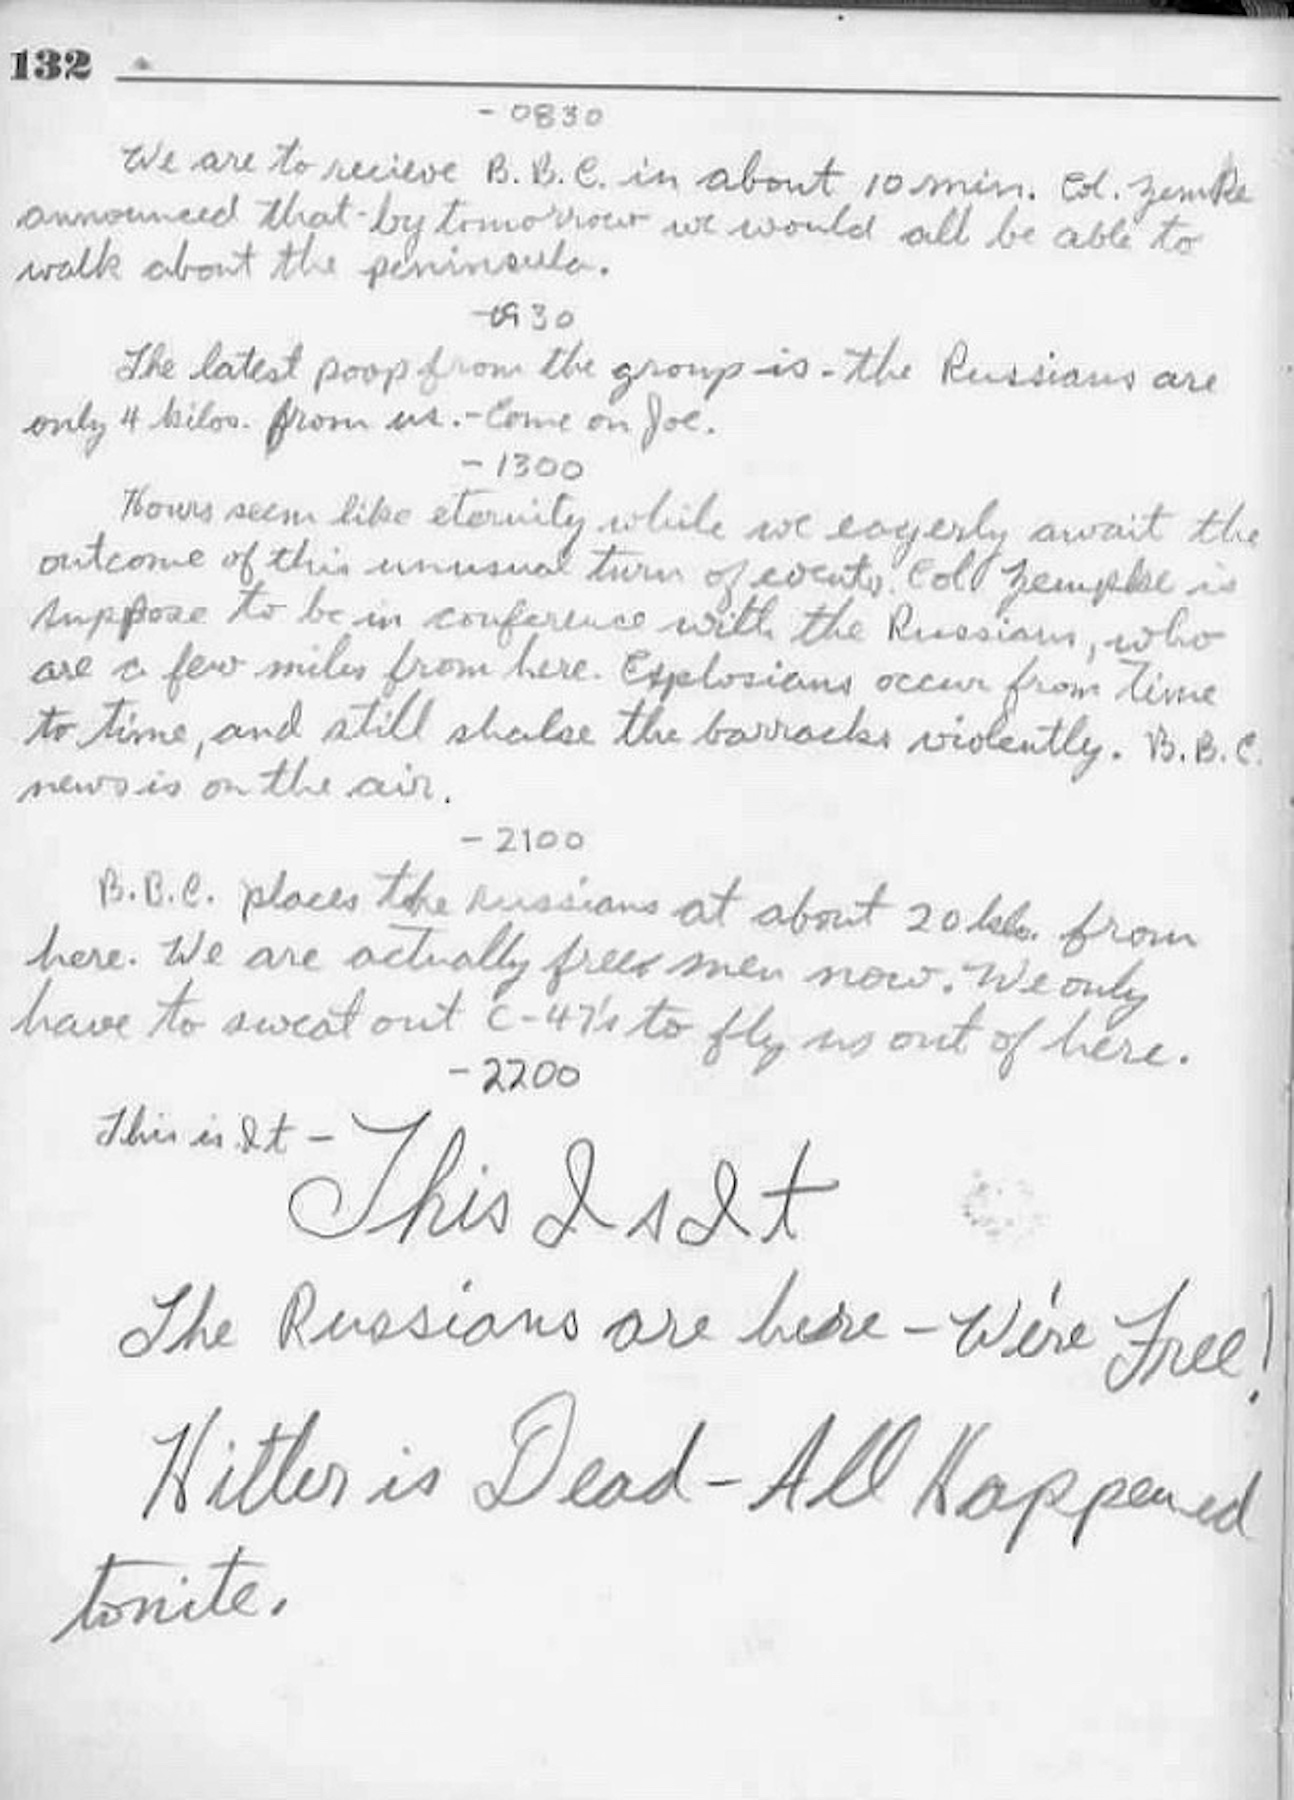 132
- 0830
We are to recieve B.B.C. in about 10 min. Col. Zemke
announced that by tomorrow we would all be able to
walk about the peninsula.
- 0930
The latest poop from the group is - the Russians are
only 4 kilos. from us. - Come on Joe.
- 1300
Hours seem like eternity while we eagerly await the
outcome of this unusual turn of events. Col Zempke is
suppose to be in conference with the Russians, who
are a few miles from here. Explosians occur from time
to time, and still shake the barracks violently. B.B.C.
news is on the air.
- 2100
B.B.C. places the Russians at about 20 kilo. from
here. We are actually free men now. We only
have to sweat out C-47's to fly us out of here.
- 2200
This is It -
This Is It
The Russians are here - We're Free!
Hitler is Dead - All Happened
tonite.